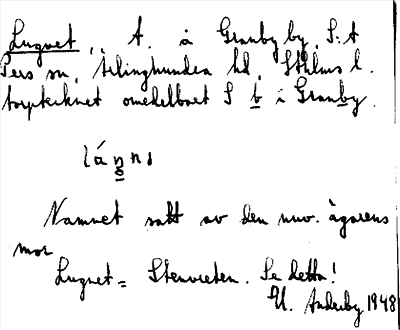 Lugnet, t. å Granby by, S:t
Pers sn, Ärlinghundra hd, Sthlms l.
torptecknet omedelbart S b i Granby.
Namnet satt av den nuv. ägarens
mor
Lugnet = Stenvreten. Se detta!
U. Anderby 1948